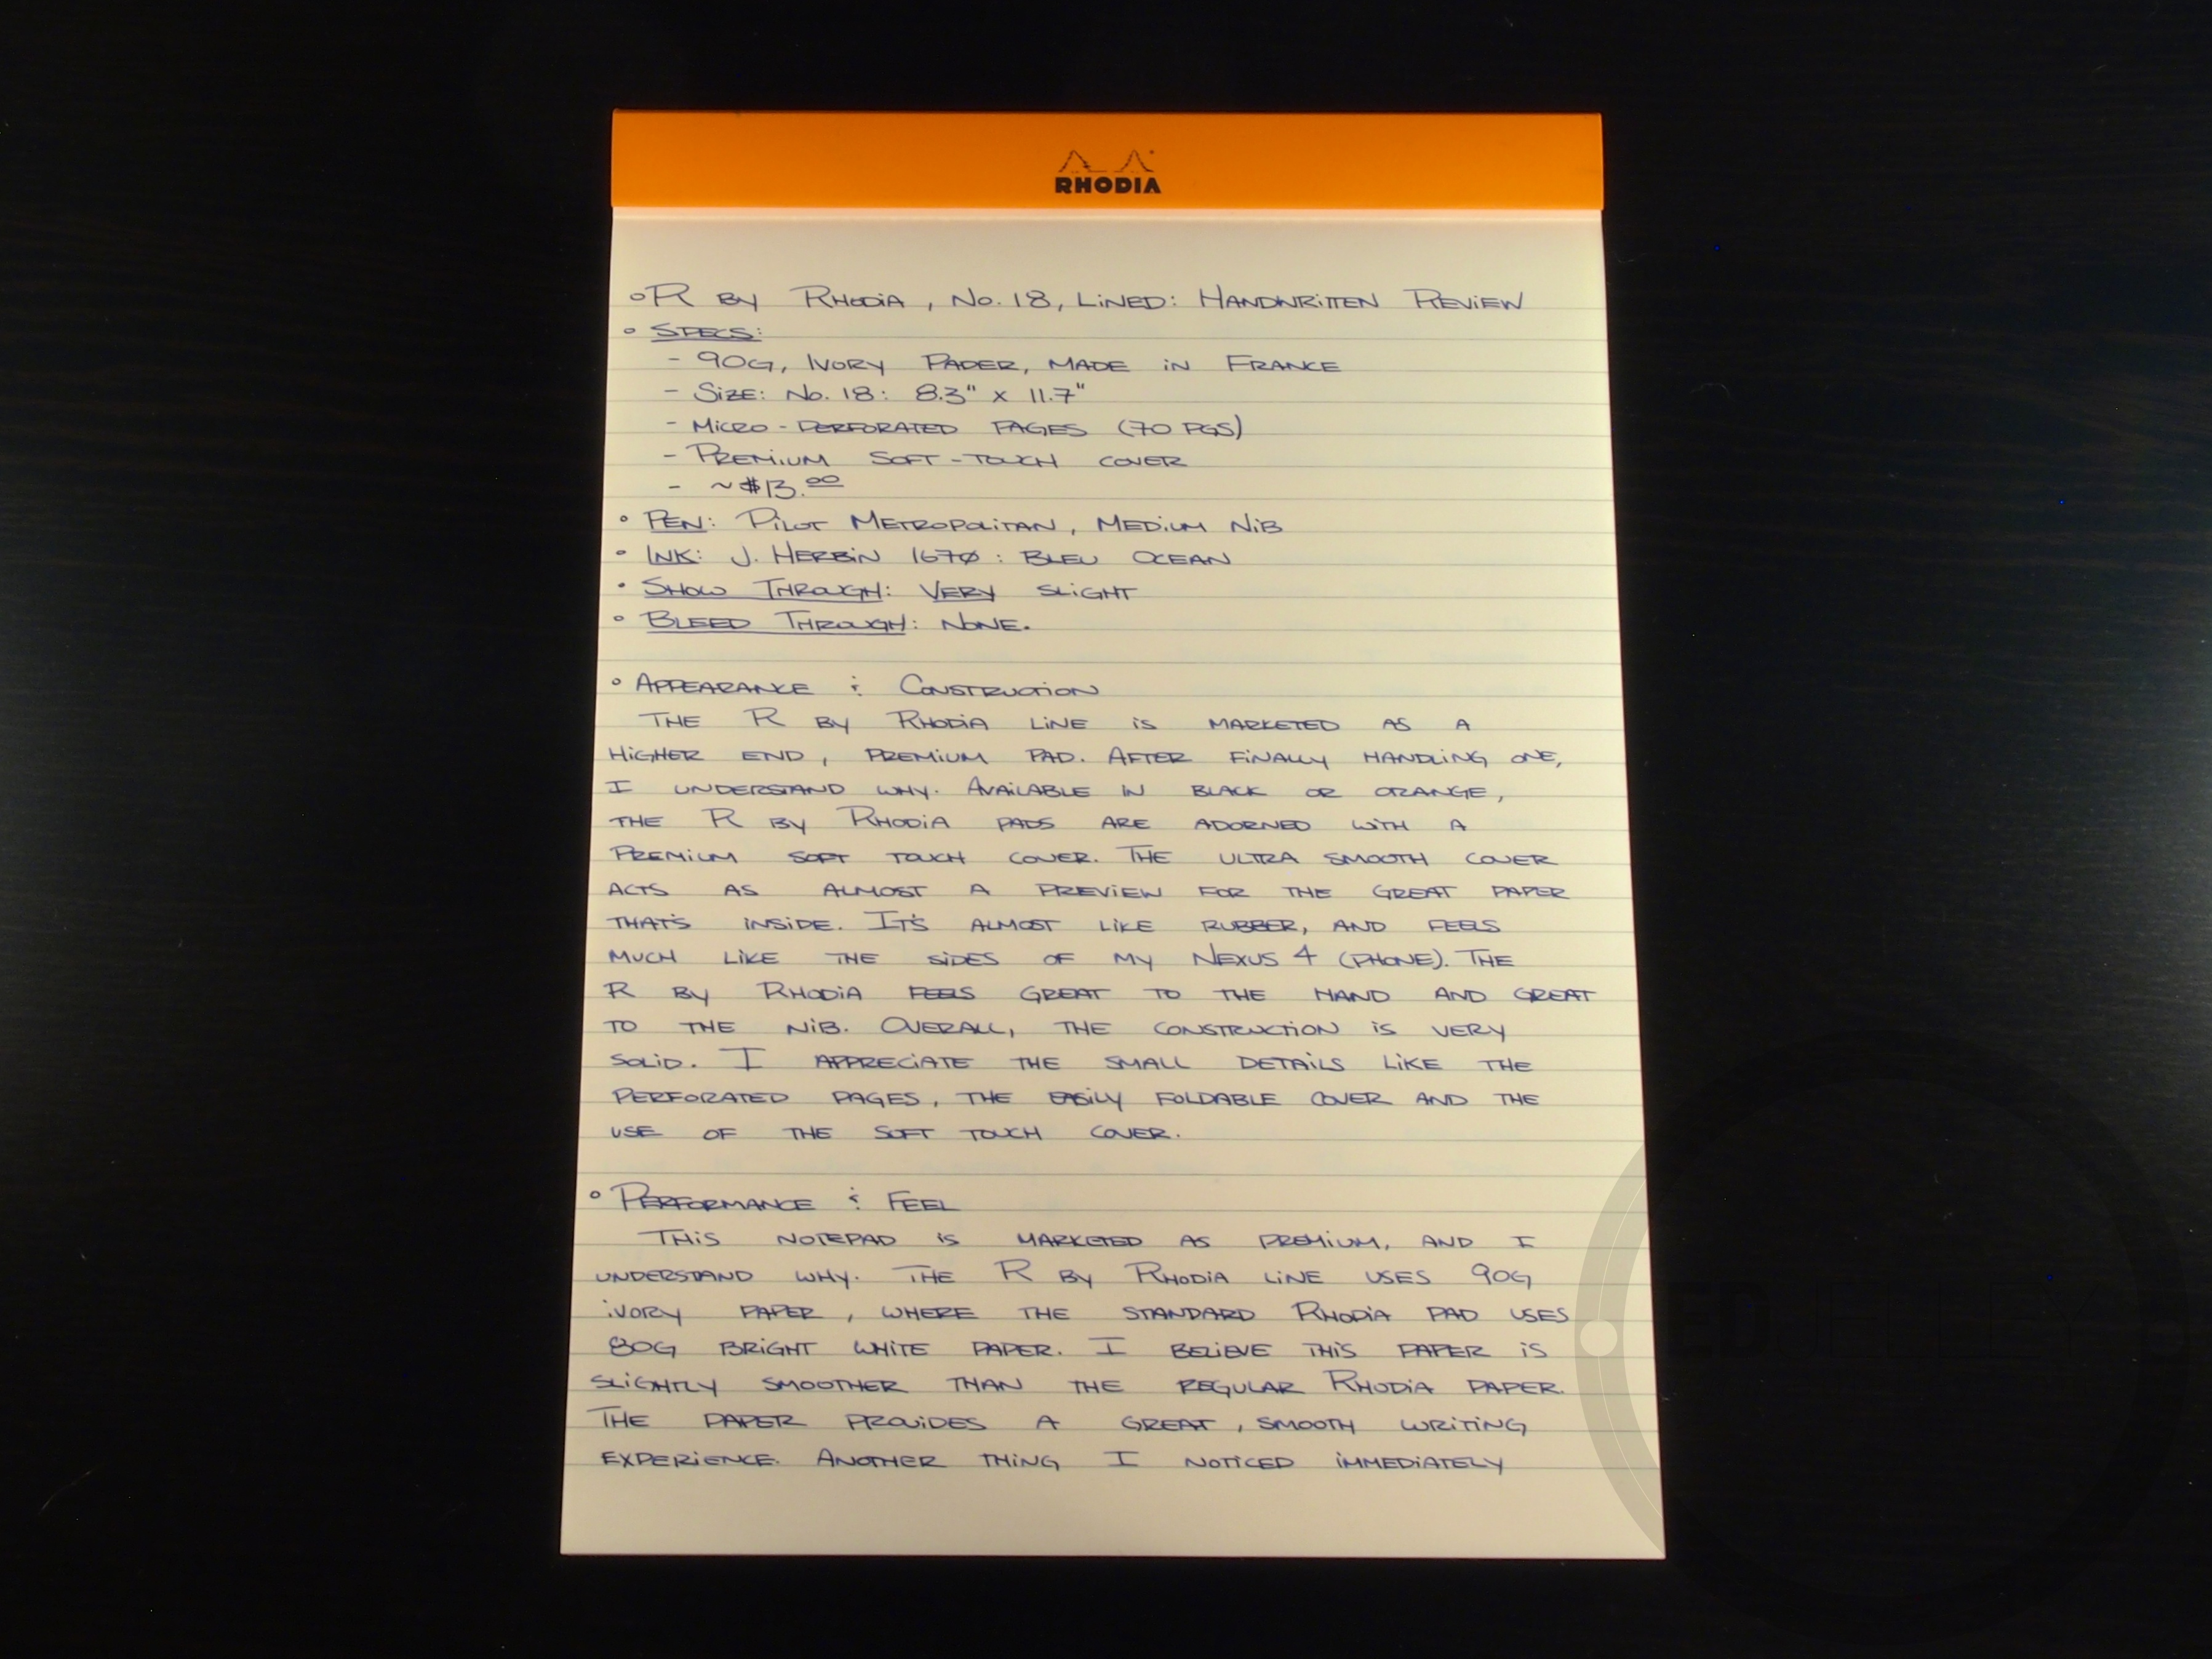 RHODIA
R BY RHODIA, NO. 18, LINED: HANDWRITTEN REVIEW
SPECS:
- 90G, IVORY PAPER, MADE IN FRANCE
- SIZE: NO. 18: 8.3" X 11.7"
- MICRO-PERFORATED PAGES (70 PGS)
- PREMIUM SOFT-TOUCH COVER
- ~$13.00
PEN: PILOT METROPOLITAN, MEDIUM NIB
INK: J. HERBIN 1670: BLEU OCEAN
SHOW THROUGH: VERY SLIGHT
BLEED THROUGH: NONE.
APPEARANCE & CONSTRUCTION
THE R BY RHODIA LINE IS MARKETED AS A
HIGHER END, PREMIUM PAD. AFTER FINALLY HANDLING ONE,
I UNDERSTAND WHY. AVAILABLE IN BLACK OR ORANGE,
THE R BY RHODIA PADS ARE ADORNED WITH A
PREMIUM SOFT TOUCH COVER. THE ULTRA SMOOTH COVER
ACTS AS ALMOST A PREVIEW FOR THE GREAT PAPER
THAT'S INSIDE. IT'S ALMOST LIKE RUBBER, AND FEELS
MUCH LIKE THE SIDES OF MY NEXUS 4 (PHONE). THE
R BY RHODIA FEELS GREAT TO THE HAND AND GREAT
TO THE NIB. OVERALL, THE CONSTRUCTION IS VERY
SOLID. I APPRECIATE THE SMALL DETAILS LIKE THE
PERFORATED PAGES, THE EASILY FOLDABLE COVER AND THE
USE OF THE SOFT TOUCH COVER.
PERFORMANCE & FEEL
THIS NOTEPAD IS MARKETED AS PREMIUM, AND I
UNDERSTAND WHY. THE R BY RHODIA LINE USES 90G
IVORY PAPER, WHERE THE STANDARD RHODIA PAD USES
80G BRIGHT WHITE PAPER. I BELIEVE THIS PAPER IS
SLIGHTLY SMOOTHER THAN THE REGULAR RHODIA PAPER.
THE PAPER PROVIDES A GREAT, SMOOTH WRITING
EXPERIENCE. ANOTHER THING I NOTICED IMMEDIATELY